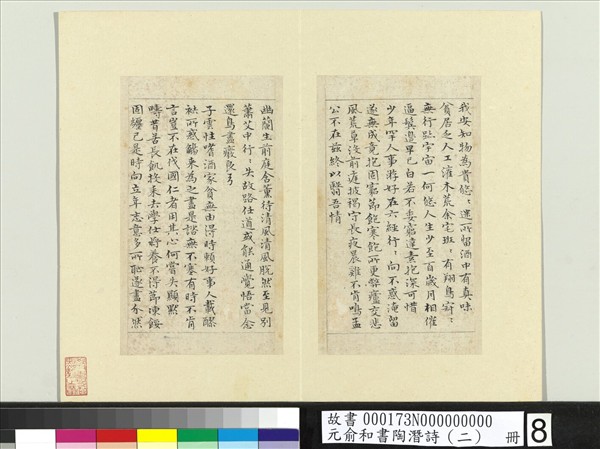 我安知物為貴悠〻迷所留酒中有真味
貧居乏人工灌木荒余宅班〻有翔鳥寂〻
無行迹宇宙一何悠人生少至百歲月相催
逼鬢邊早已白若不委窮達素抱深可惜
少年罕人事游好在六經行〻向不惑淹留
遂無成竟抱固窮節飢寒飽所更弊廬交悲
風荒草沒前庭披褐守長夜晨雞不肯鳴孟
公不在茲終以翳吾情
幽蘭生前庭含薰待清風清風脫然至見別
蕭艾中行〻失故路任道或能通覺悟當念
還鳥盡廢良弓
子雲性嗜酒家貧無由得時賴好事人載醪
袪所惑觴來為之盡是諮無不塞有時不肯
言豈不在伐國仁者用其心何嘗失顯默
疇昔苦長飢投耒去學仕將養不得節凍餒
固纏己是時向立年志意多所恥遂盡介然
故書 000173N000000000
元俞和書陶潛詩(二) 冊
8